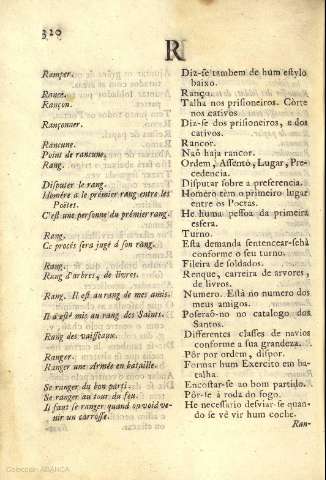 320
R
Ramper.
Diz-se tambem de hum estylo
baixo.
Rance.
Ranço.
Rançon.
Talha nos prisioneiros. Córte
nos cativos
Rançonner.
Diz-se dos prisioneiros, e dos
cativos.
Rancune.
Rancor.
Point de rancune.
Naõ haja rancor.
Rang.
Ordem, Assento, Lugar, Pre-
cedencia.
Disputer le rang.
Disputar sobre a preferencia.
Homére a le prémier rang entre les
Homéro tèm o primeiro lugar
Poëtes.
entre os Poetas.
C'est une personne du prémier rang.
He huma pessoa da primeira
esfera.
Rang.
Turno.
Ce procés sera jugé à son rang.
Esta demanda sentencear-sehá
conforme o seu turno.
Rang.
Fileira de soldados.
Rang d'arbres, de livres.
Renque, carreira de arvores,
de livros.
Rang. Il est au rang de mes amis.
Numero. Está no numero dos
meus amigos.
Il a esté mis au rang des Saints.
Poseraõ-no no catalogo dos
Santos.
Rang des vaisseaux.
Differentes classes de navios
conforme a sua grandeza.
Ranger.
Pôr por ordem, dispor.
Ranger une Armée en bataille.
Formar hum Exercito em ba-
talha.
Se ranger du bon parti.
Encostar-se ao bom partido.
Se ranger au tour du feu.
Pôr-se á roda do fogo.
Il faut se ranger quand on void ve-
He necessario desviar-se quan-
nir un carrosse.
do se vè vir hum coche.
Ran-
Colección ABANCA